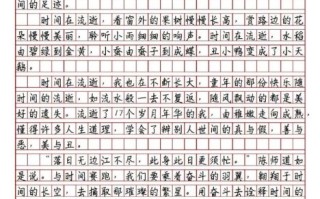 间的足迹。
时间在流逝,看窗外的果树慢慢长高,赏路边的花
朵慢慢美丽,聆听小雨细细的响声。时间在流逝,水稻
由碧绿到金黄,小蚕由蚕子到成蝶,丑小鸭变成了小天
鹅。
时间在流逝,我也在不断长大,童年的那份快乐随
时间的流逝,如流水般一去不复返,随风飘动的都是美
好的遗失。流逝了17个岁月年华的我,由稚嫩走向成熟,
懂得许多人生道理,学会了辨别人世间的真与假,善与
恶,美与丑。
“落日无边江不尽,此身此日更须忙。”陈师道如
是说。与时间赛跑,我们要乘着奋斗的羽翼,翱翔于时
间的长空,去摘取那璀璨的繁星。用奋斗去诠释时间的